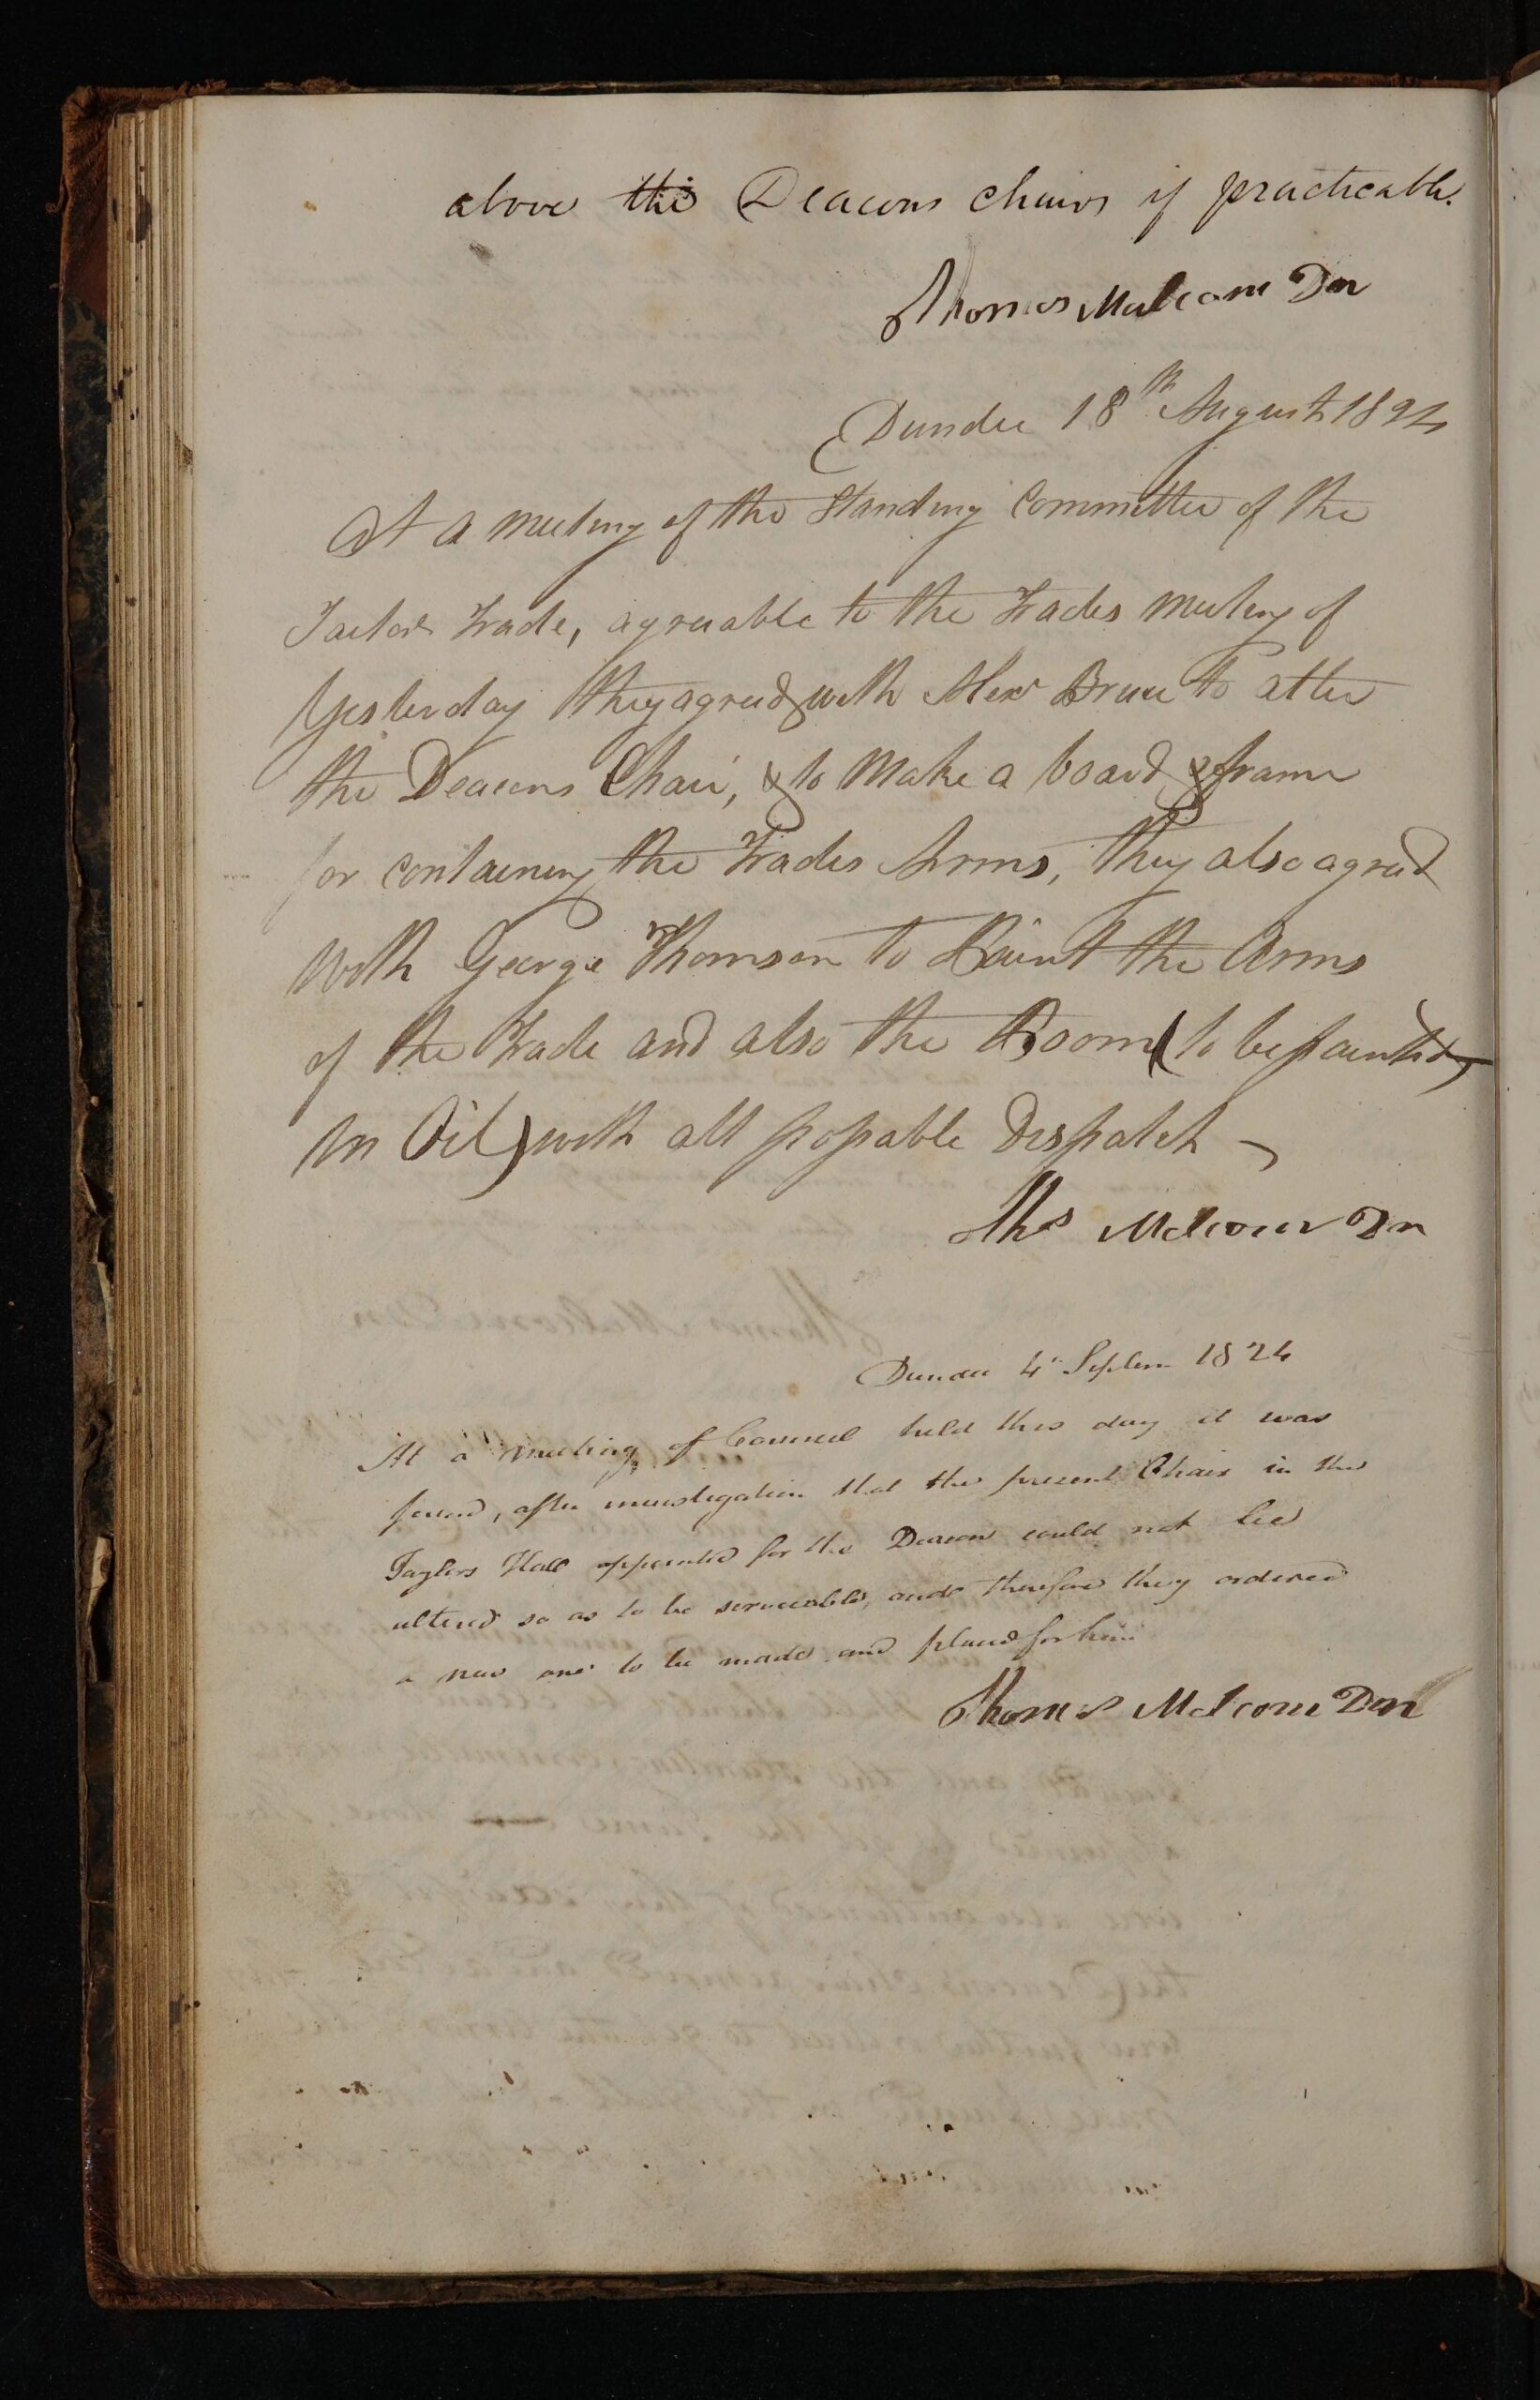 above the Deacons Chairs if practicable.
Thomas Malcom Dn
Dundee 18th August 1824
At a meeting of the Standing Committee of the
Tailors Trade, agreeable to the Trades meeting of
Yesterday they agreed with Alexr Bruce to alter
the Deacons Chair, & to Make a board & frame
for containing the Trades Arms, they also agreed
with George Thomson to Paint the Arms
of the Trade and also the Room (to be painted
in Oil) with all possable Dispatch
Ths Malcom Dn
Dundee 4th Septem 1824
At a meeting of Council held this day it was
found, after investigation that the present Chair in the
Taylors Hall appointed for the Deacon could not be
altered so as to be serviceable, and therefore they ordered
a new one to be made and placed for him
Thomas Malcom Dn